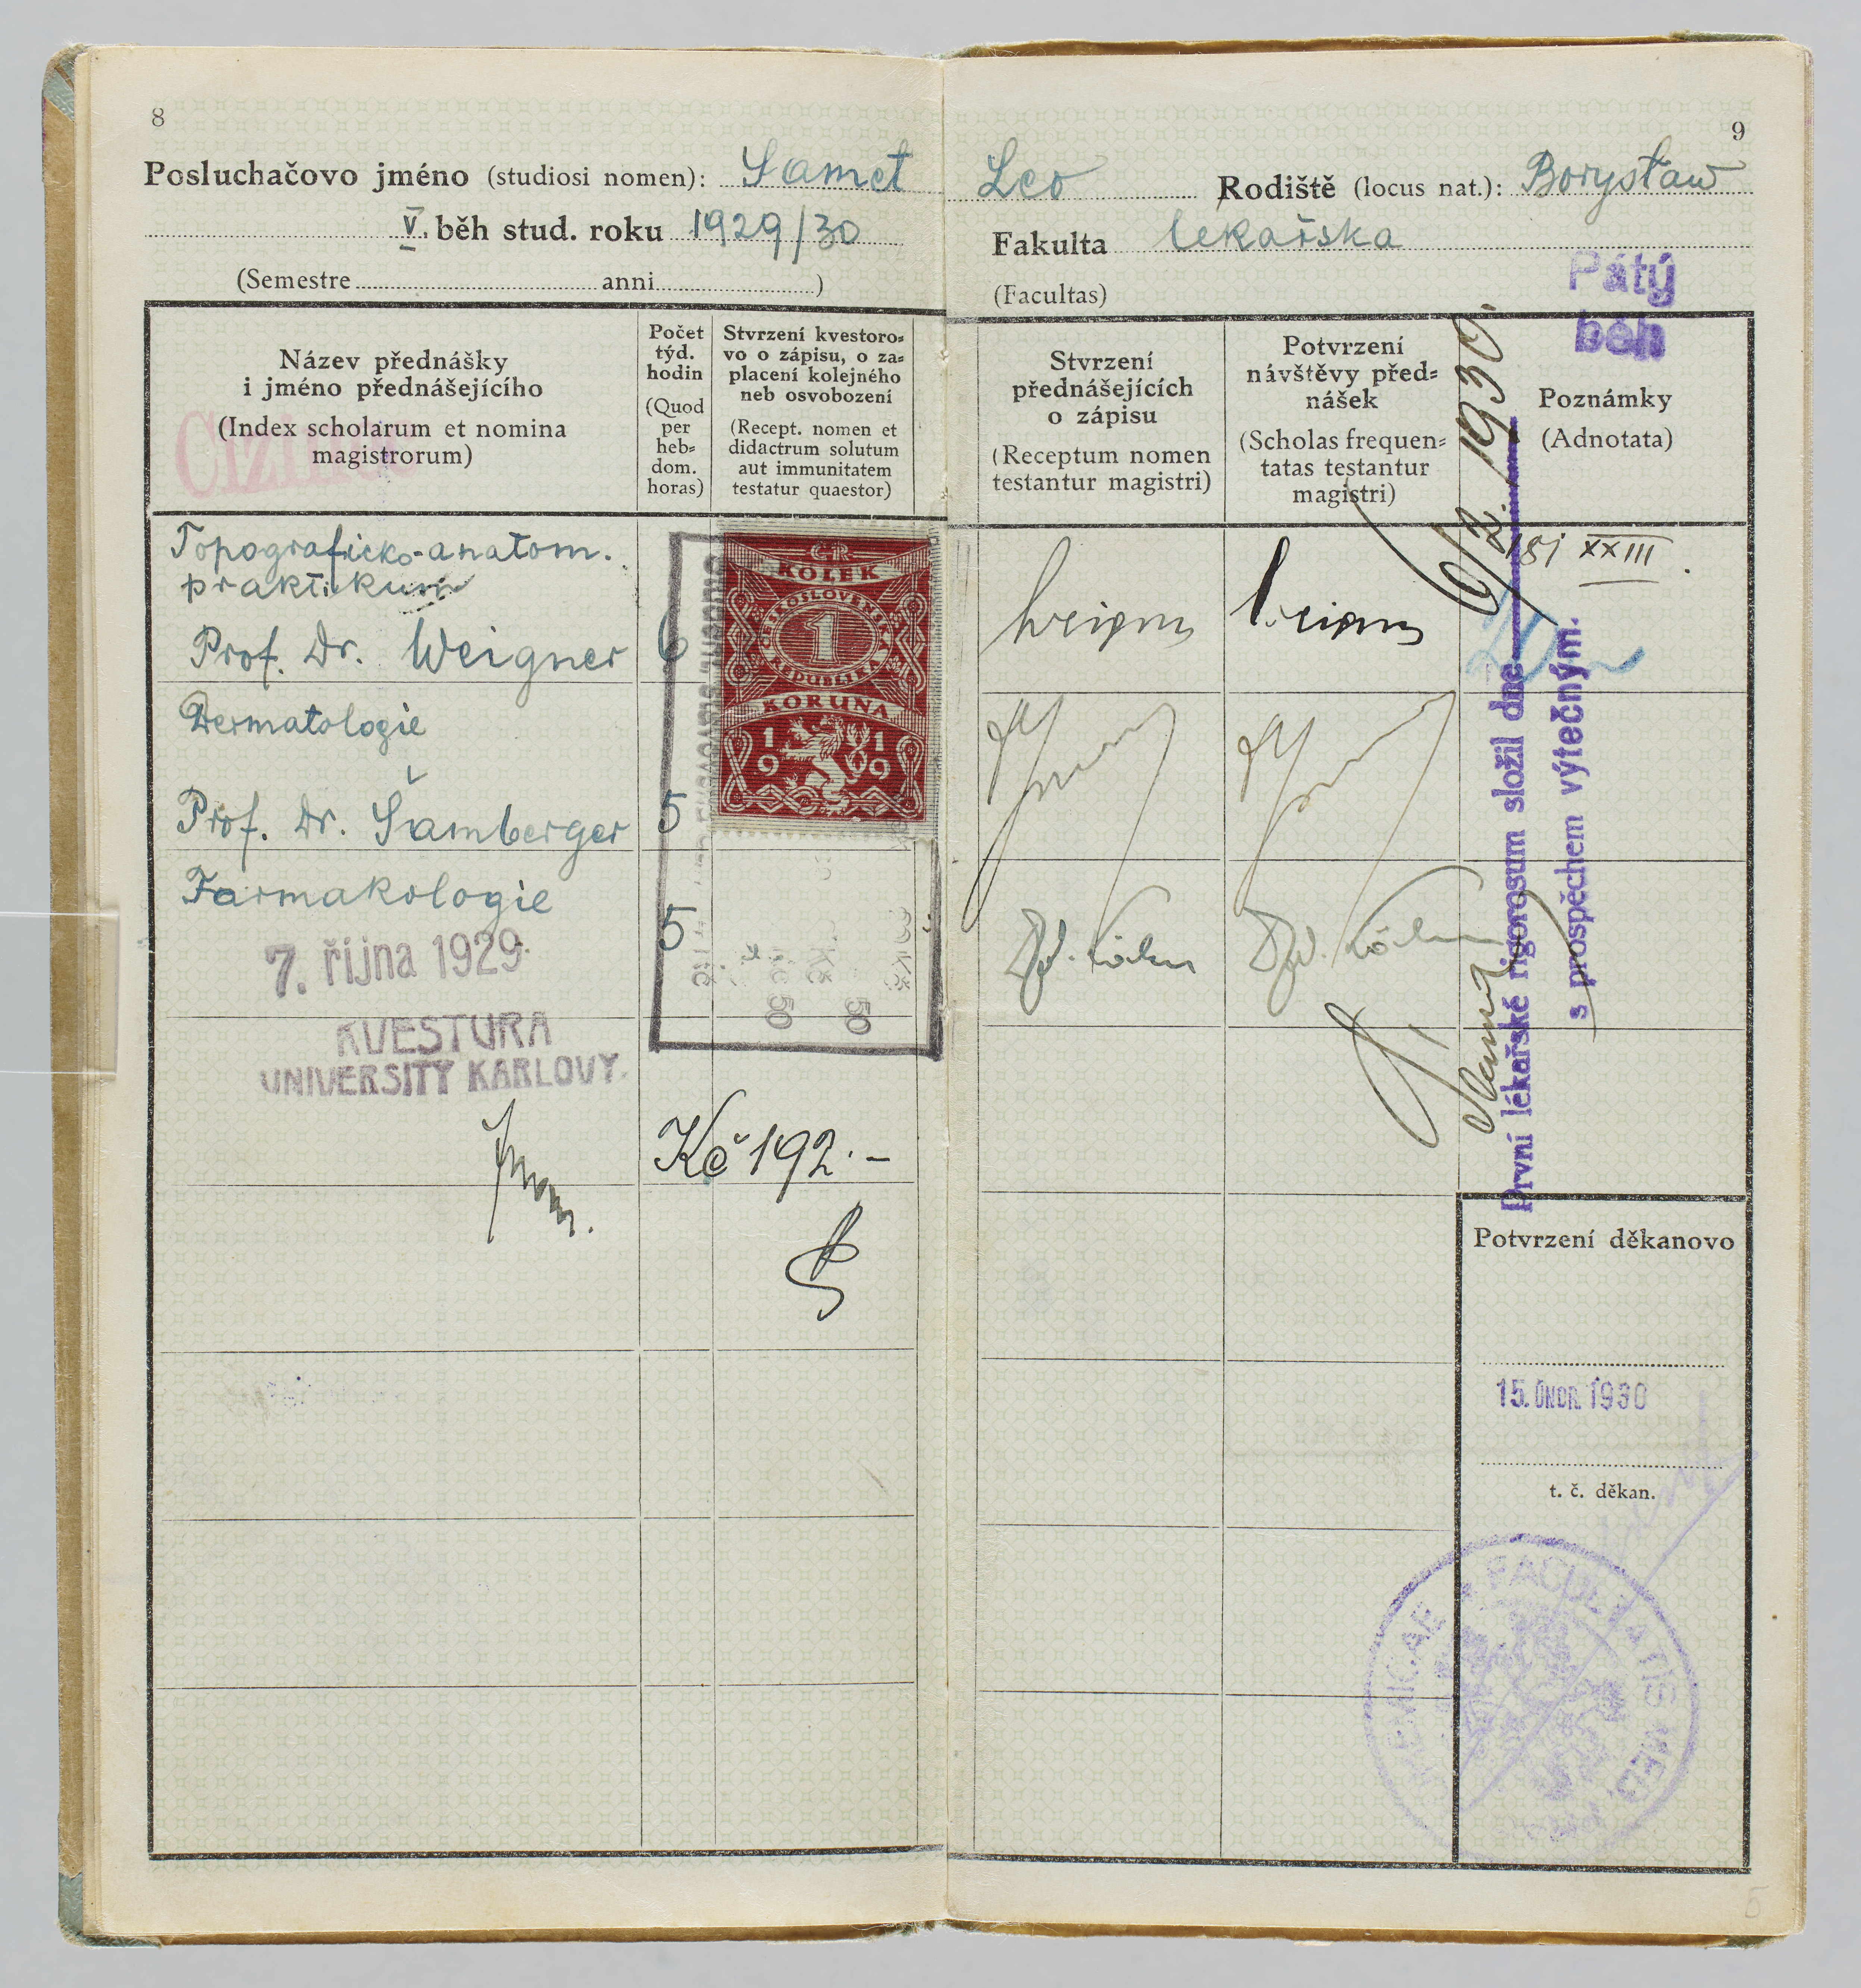 8
Posluchačovo jméno (studiosi nomen): Samet
V. běh stud. roku 1929/30
(Semestre anni )
Název přednášky
i jméno přednášejícího
(Index scholarum et nomina
magistrorum)
Cizinec
Počet
týd.
hodin
(Quod
per
heb=
dom.
horas)
Stvrzení kvestoro=
vo o zápisu, o za=
placení kolejného
neb osvobození
(Recept. nomen et
didactrum solutum
aut immunitatem
testatur quaestor)
Topograficko-anatom.
praktikum
Prof. Dr. Weigner 6
Dermatologie
Prof. Dr. Šamberger 5
Farmakologie
5
7. října 1929
KVESTURA
UNIVERSITY KARLOVY.
Kč 192.-
ČR
KOLEK
ČESKOSLOVENSKÁ
1
REPUBLIKA
KORUNA
1919
50
50
9
Leo Rodiště (locus nat.): Borysław
Fakulta lékařska
(Facultas)
Pátý
běh
Stvrzení
přednášejících
o zápisu
(Receptum nomen
testantur magistri)
Potvrzení
návštěvy před=
nášek
(Scholas frequen=
tatas testantur
magistri)
Poznámky
(Adnotata)
XXIII
První lékařské rigorosum složil dne 1930
s prospěchem výtečným.
Potvrzení děkanovo
15. ÚNOR. 1930
t. č. děkan.
FACULTATIS MED.